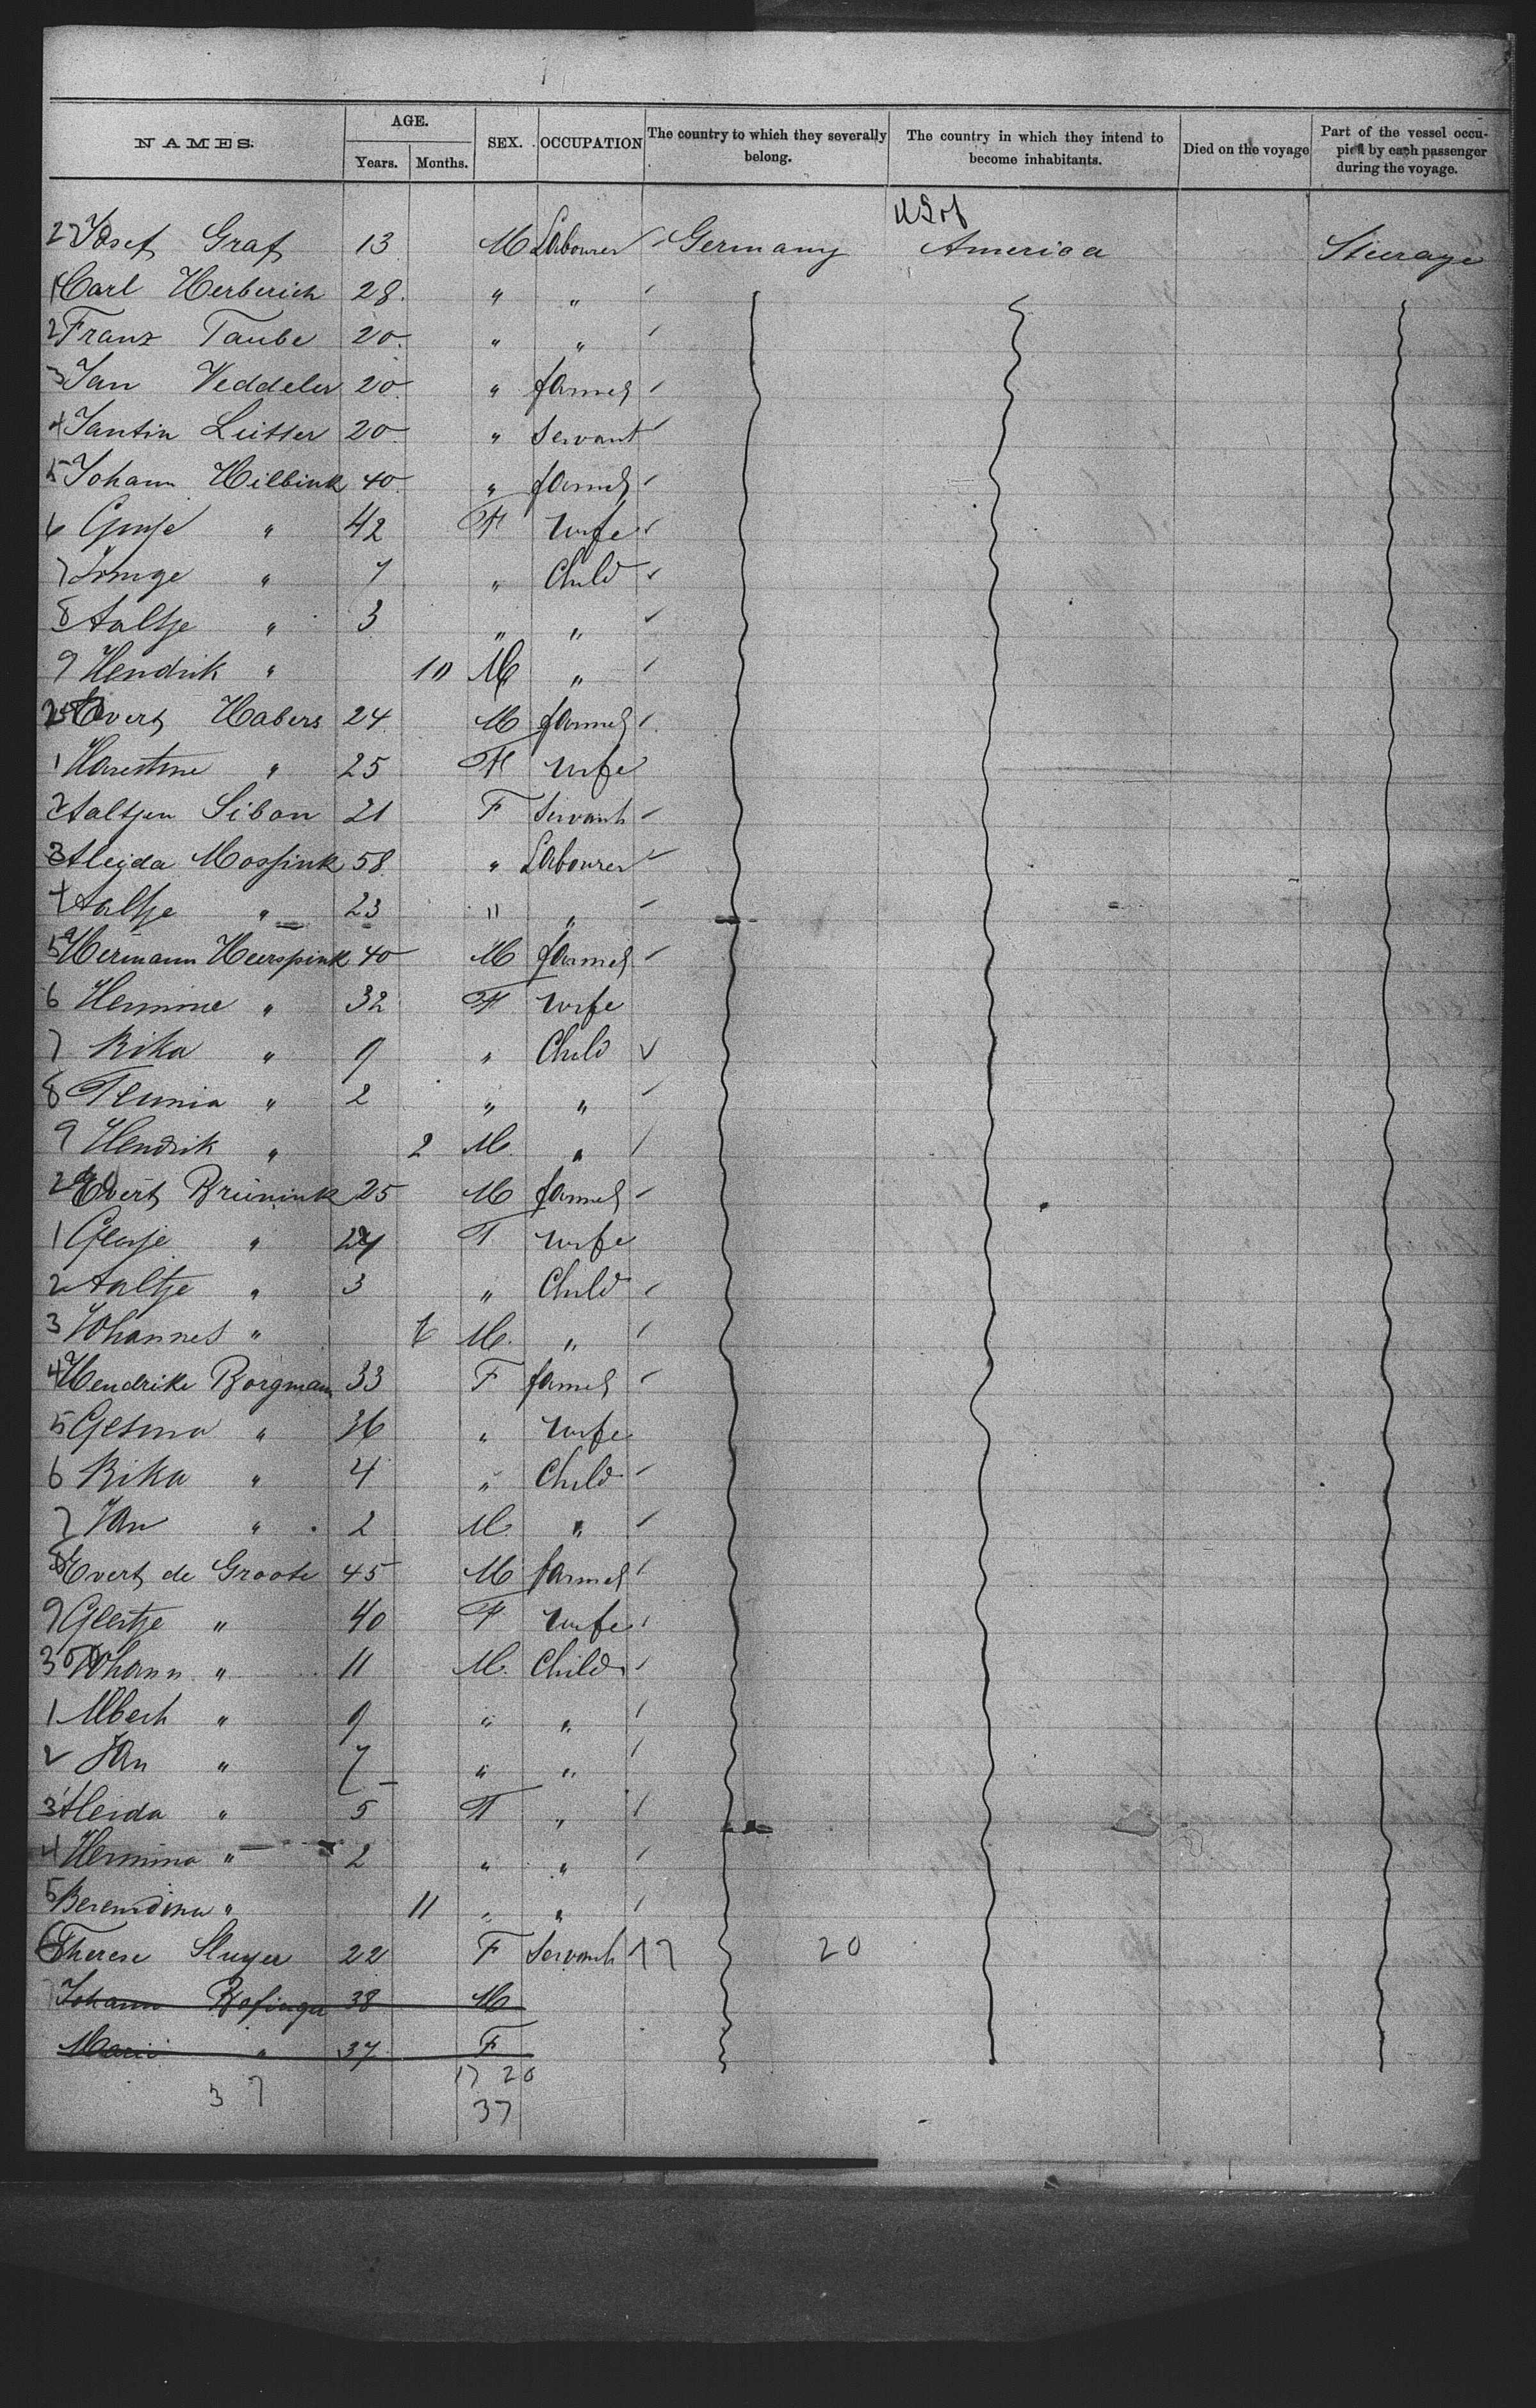 NAMES. AGE. Years. Months. SEX. OCCUPATION The country to which they severally belong. The country in which they intend to become inhabitants. Died on the voyage Part of the vessel occupied by each passenger during the voyage.
US of
Josef Graf 13 M Labourer Germany America Steerage
1 Carl Herberich 28. " "
2 Franz Taube 20. " "
3 Jan Veddeler 20. " farmer
4 Jantin 20. " Servant
5 Johann Hilbink 40. " farmer
6 " 42 F wife
7 " 7 " Child
8 Aaltje " 3 " "
9 Hendrik " 10 M "
Evert Habers 24. M farmer
1 " 25 F wife
2 Aaltjen Sibon 21 F Servant
3 Aleida Mossink 58. " Labourer
4 Aaltje " 23 " "
5 Hermann Heerspink 40 M farmer
6 Hermine " 32 F wife
7 Rika " 9 " Child
8 " 2 " "
9 Hendrik " 2 M. "
Evert Brünink 25 M farmer
1 Geertje " F wife
2 Aaltje " 3 " Child
3 Johannes " 6 M. "
4 Hendrike Borgmann 33 F farmer
5 Gesina " 36 " wife
6 Rika " 4 " Child
7 Jan " 2 M. "
8 Evert de Groote 45 M farmer
9 Geertje " 40 F wife
30 Johann " 11 M. Child
1 Albert " 9 " "
2 Jan " 7 " "
3 Aleida " 5 F "
4 Hermina " 2 " "
5 Berendina " 11 " "
6 Therese Sluyer 22 F Servant 17 20
Johann Bofinger 38 M
Marie " 37 F
17 20
37
37